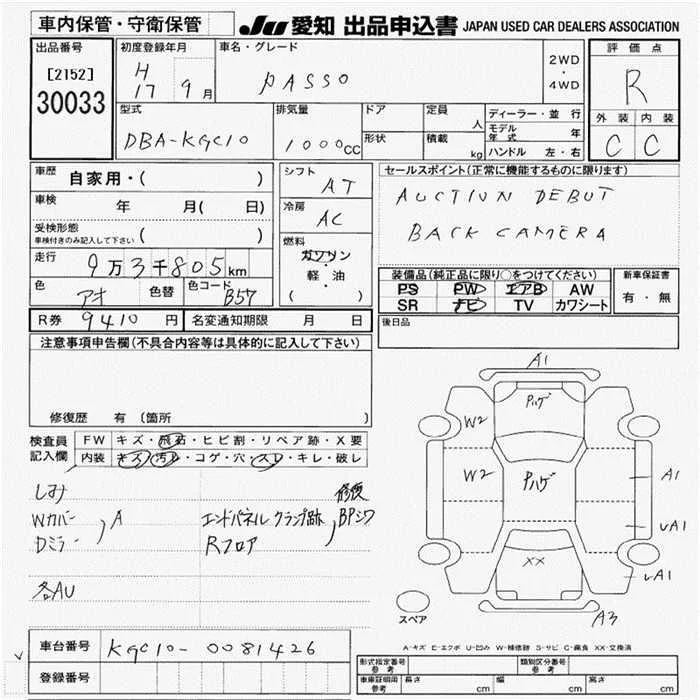 車内保管・守衛保管
JU 愛知 出品申込書 JAPAN USED CAR DEALERS ASSOCIATION
出品番号
[2152]
30033
初度登録年月
H
17 9月
車名・グレード
PASSO
2WD
・
4WD
評価点
R
外装 内装
C C
型式
DBA-KGC10
排気量
1000CC
ドア
形状
定員
人
積載
kg
ディーラー・並 行
モデル年式 年
ハンドル 左・右
車歴
自家用・( )
車検
年 月( 日)
受検形態
車検付きのみ記入して下さい ( )
走行
9万3千805km
色
アオ
色替
色コード
B57
シフト
AT
冷房
AC
燃料
ガソリン
・
軽・油
( )
セールスポイント(正常に機能するものに限ります)
AUCTION DEBUT
BACK CAMERA
装備品(純正品に限り○をつけてください)
PS PW エアB AW
SR ナビ TV カワシート
新車保証書
有・無
R券 9410円
名変通知期限 月 日
後日品
注意事項申告欄(不具合内容等は具体的に記入して下さい)
修復歴 有 (箇所 )
検査員
記入欄
FW キズ・飛石・ヒビ割・リペア跡・X要
内装 キズ・汚れ・コゲ・穴・スレ・キレ・破レ
しみ
Wカバー
Dミラー
, A
修復
エンドパネル クランプ跡, BPシワ
Rフロア
各AU
A1
Pハゲ
W2
W2
Pハゲ
A1
UA1
XX
UA1
A3
スペア
A-キズ E-エクボ U-凹み W-補修跡 S-サビ C-腐食 XX-交換済
車台番号
KGC10-0081426
登録番号
形式指定番号
参考
類別区分番号
参考
車庫証明用
参考
長さ cm 幅 cm 高さ cm